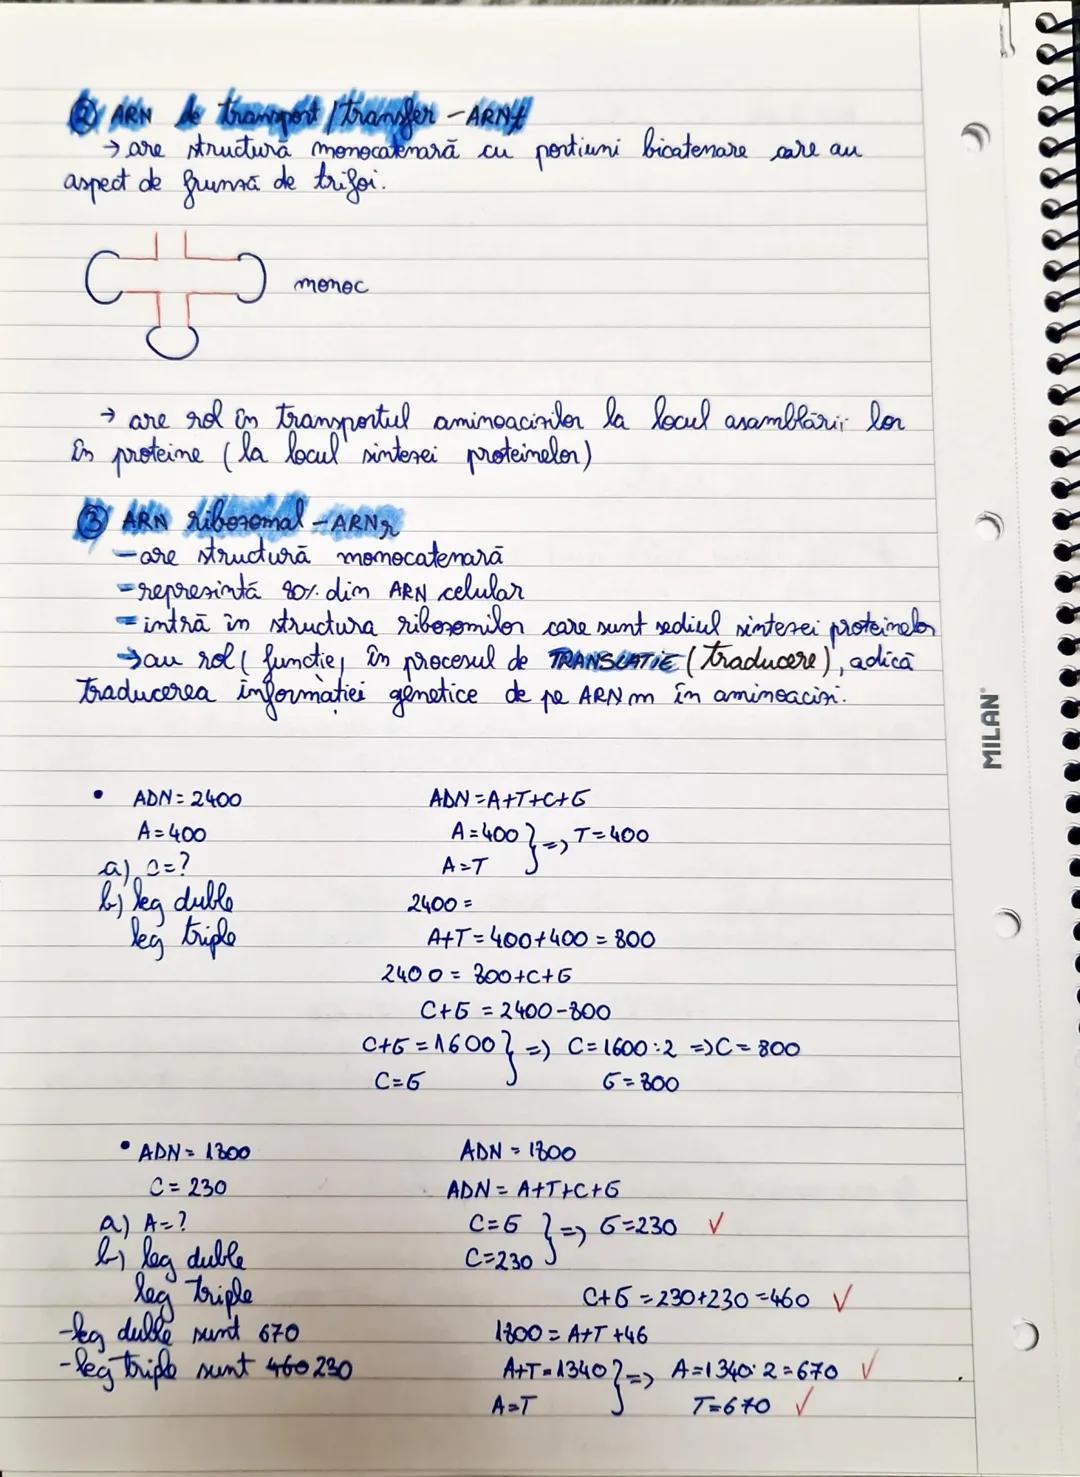 ② ARN de transport / transfer - ARNt
→ are structură monocatenară cu porțiuni bicatenare care au
aspect de frunză de trifoi.
monoc
→ are rol în transportul aminoacizilor la locul asamblării lor
în proteine (la locul sintezei proteinelor)
③ ARN ribozomal - ARNr
- are structură monocatenară
- reprezintă 80% din ARN celular
- intră în structura ribozomilor care sunt sediul sintezei proteinelor
→ au rol (funcție) în procesul de TRANSLAȚIE (traducere), adică
traducerea informației genetice de pe ARNm în aminoacizi.
MILAN®
• ADN = 2400
A = 400
a) C = ?
b) leg duble
leg triple
ADN = A+T+C+G
A = 400 } => T = 400
A = T
2400 =
A+T = 400+400 = 800
2400 = 800+C+G
C+G = 2400-800
C+G = 1600 } => C = 1600:2 => C = 800
C = G G = 800
• ADN = 1800
C = 230
a) A = ?
b) leg duble
leg triple
- leg duble sunt 670
- leg triple sunt 460 230
ADN = 1800
ADN = A+T+C+G
C = G } => G = 230 ✓
C = 230
C+G = 230+230 = 460 ✓
1800 = A+T+46
A+T = 1340 } => A = 1340:2 = 670 ✓
A = T T = 670 ✓